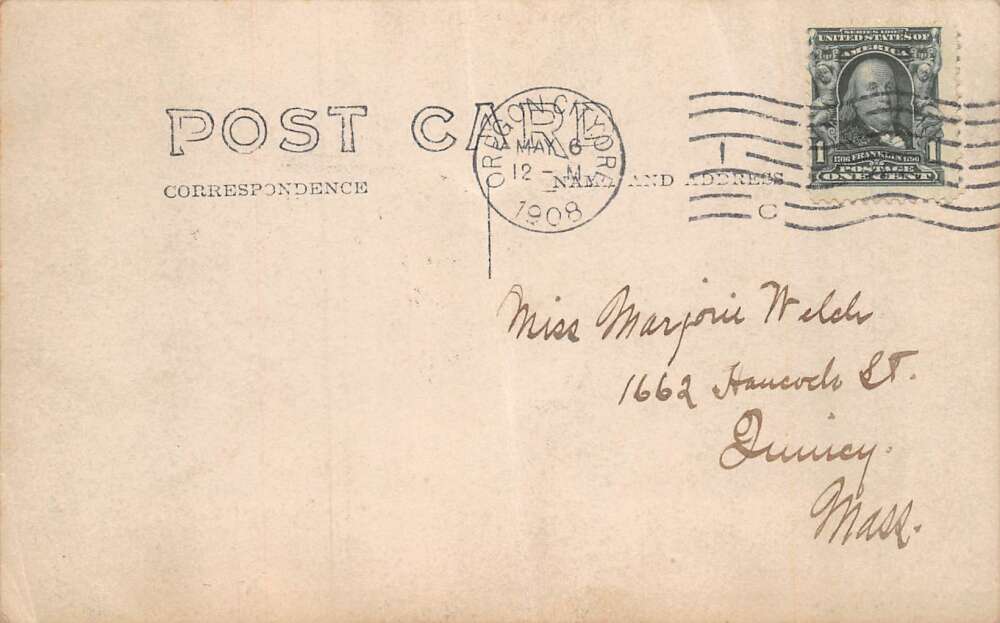 SERIES 1902
UNITED STATES OF
AMERICA
1 1706 FRANKLIN 1790 1
POSTAGE
ONE CENT
POST CARD
OREGON CITY ORE
MAY 6
12 - M
1908
1
C
CORRESPONDENCE
NAME AND ADDRESS
Miss Marjorie Welch
1662 Hancock St.
Quincy.
Mass.